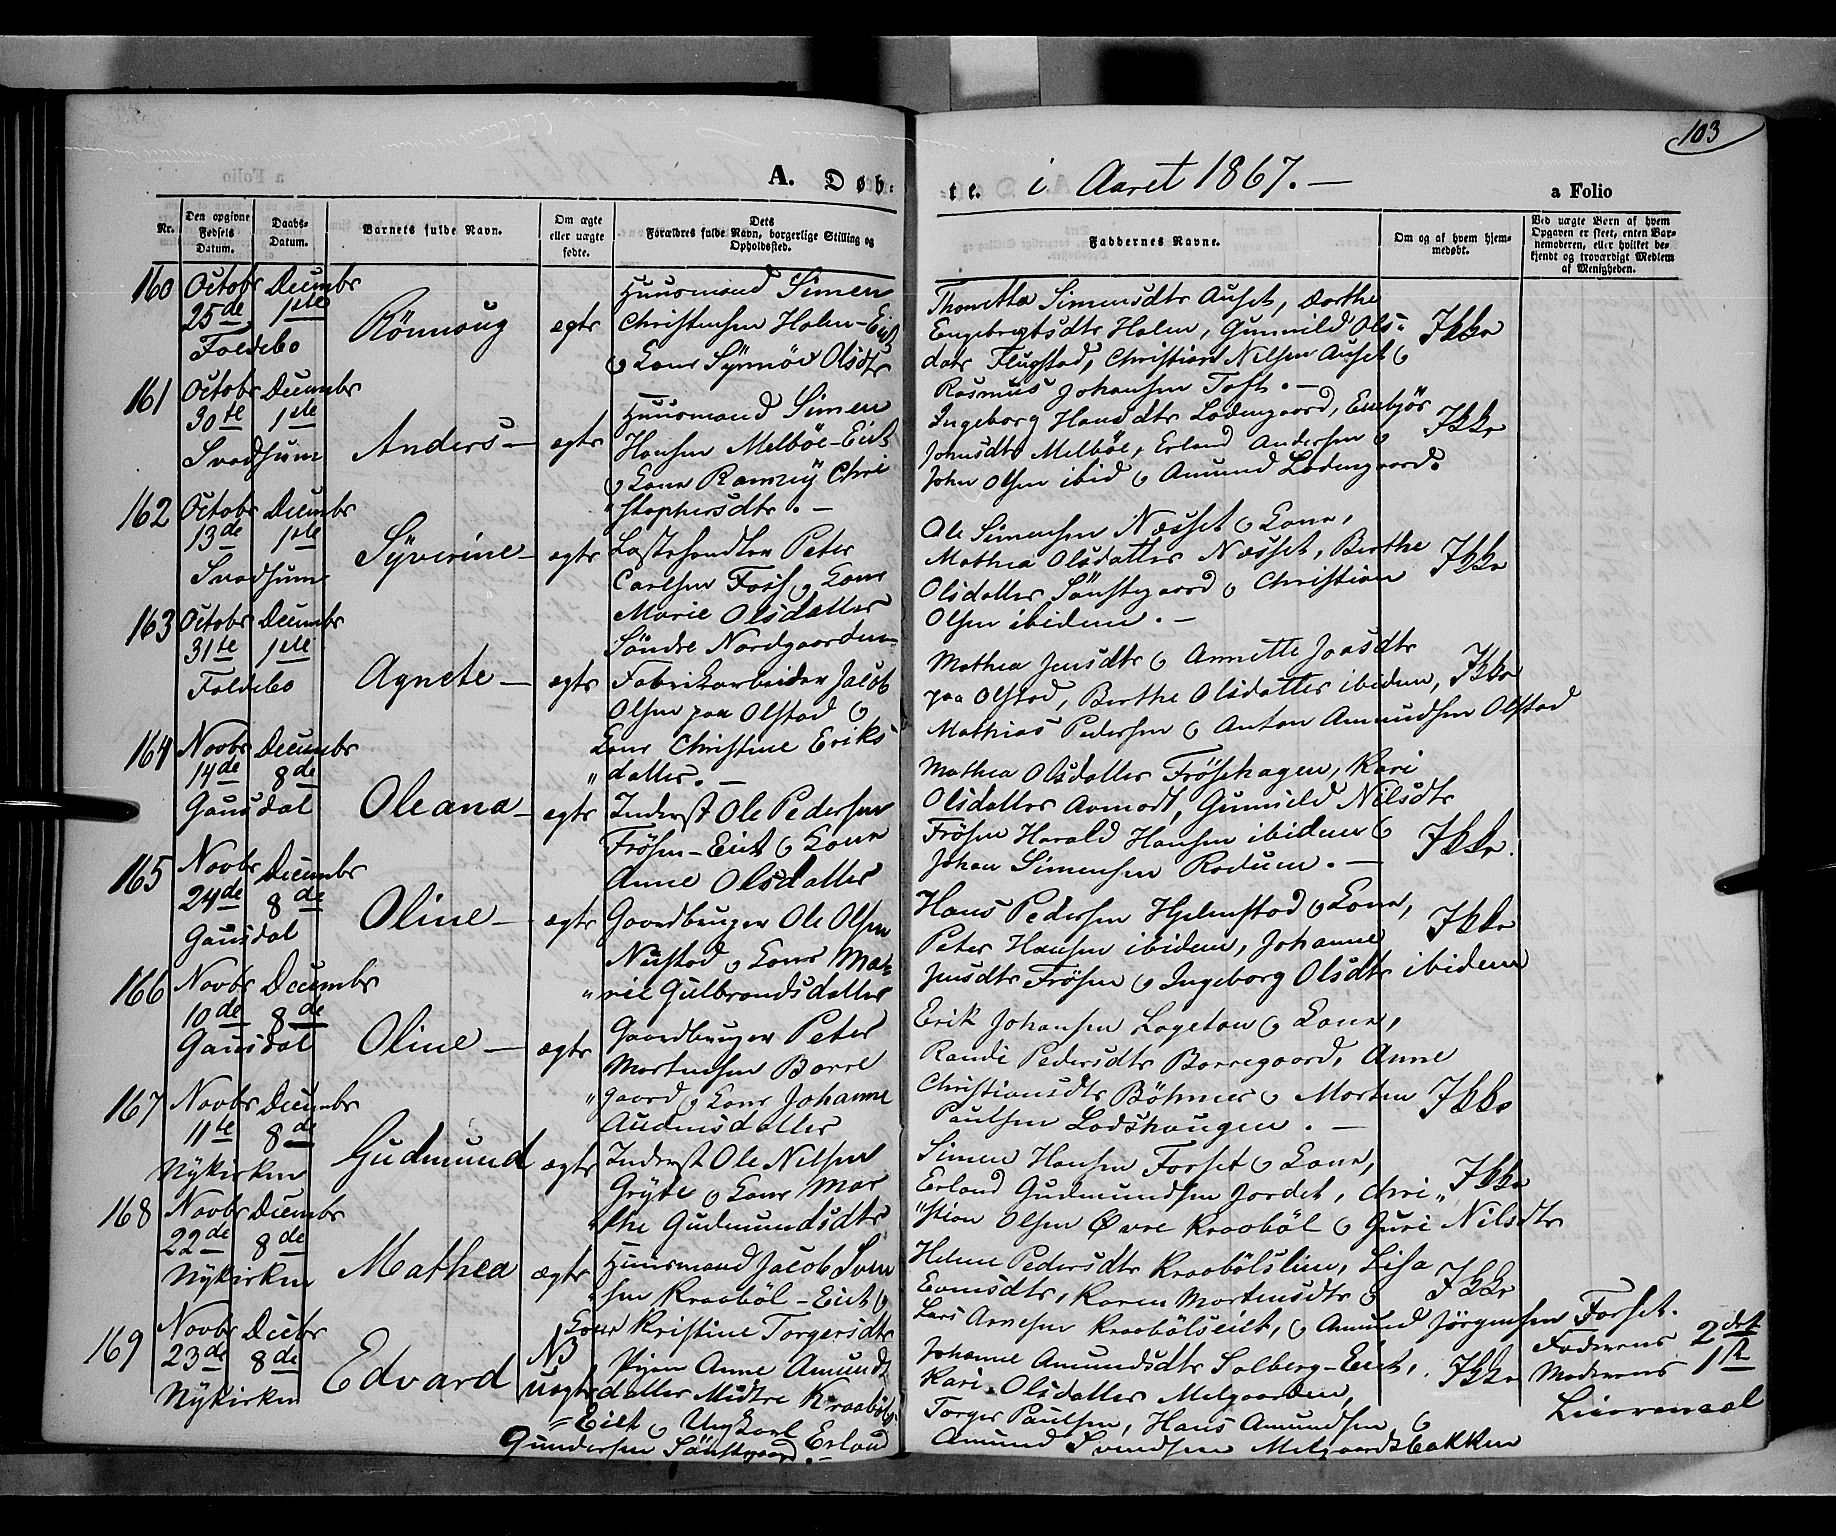 103
A. Døb-
te. i Aaret 1867. —
a Folio
Nr.
Den opgivne Fødsels Datum.
Daabs-Datum.
Barnets fulde Navn.
Om ægte eller uægte fødte.
Dets Forældres fulde Navn, borgerlige Stilling og Opholdssted.
Faddernes Navne.
Om og af hvem hjemmedøbt.
Ved uægte Børn af hvem Opgaven er skeet, enten Barnemoderen, eller hvilket bekjendt og troværdigt Medlem af Menigheden.
160
Octobr 25de
Decembr 1ste
Foldebo
Rönnoug
egte
Huusmand Simen
Christensen Holen-Eiet
o Kone Synnöv Olsdtr
Thonetta Simensdtr Auset, Dorthe
Engebregtsdtr Holen, Gunnild Ols-
datr Flugstad, Christian Nilsen Auset o
Rasmus Johansen Toft. —
Ikke
161
Octobr 30te
Decembr 1ste
Svadsum
Anders —
egte
Huusmand Simen
Hansen Melböe-Eiet
o Kone Ramey Chri
stophersdtr. —
Ingeborg Hansdtr Ladengaard, Embjör
Jonsdtr Melböe, Erland Andersen o
John Olsen ibid o Amund Ladengaard.
Ikke
162
Octobr 13de
Decembr 1ste
Svadsum
Syverine —
egte
Læstehandler Peter
Carlsen Foss, o Kone
Marie Olsdatter
Söndre Nordgaarden —
Ole Simensen Næsset o Kone,
Mathea Olsdatter Næsset, Berthe
Olsdatter Sönstegaard o Christian
Olsen ibidem. —
Ikke
163
Octobr 31te
Decembr 1ste
Foldebo
Agnete —
egte
Fabrikarbeider Jacob
Olsen paa Olstad o
Kone Christine Eriks
datter. —
Mathea Jensdtr o Annette Joasdtr
paa Olstad, Berthe Olsdatter ibidem,
Mathias Pedersen o Anton Amundsen Olstad
Ikke
164
Novbr 14de
Decembr 8de
Gausdal
Oleana —
egte
Inderst Ole Pedersen
Frösen-Eiet o Kone
Anne Olsdatter
Mathea Olsdatter Fröshagen, Kari
Olsdatter Aamodt, Gunnild Nilsdtr
Frösen Harald Hansen ibidem o
Johan Simensen Rodum. —
Ikke.
165
Novbr 24de
Decembr 8de
Gausdal
Oline —
egte
Gaardbruger Ole Olsen
Nustad o Kone Ma-
rie Gulbrandsdatter
Hans Pedersen Hjelmstad o Kone,
Peter Hansen ibidem, Johanne
Jensdtr Frösen o Ingeborg Olsdtr ibidem
Ikke
166
Novbr 10de
Decembr 8de
Gausdal
Oline —
ægte
Gaardbruger Peter
Mortensen Borre
gaard o Kone Johanne
Audensdatter
Erik Johansen Lageton o Kone,
Randi Pedersdtr Borregaard, Anne
Christiansdtr Böhmer o Morten
Paulsen Lodshaugen. —
Ikke
167
Novbr 11te
Decembr 8de
Nykirken
Gudmund
ægte
Inderst Ole Nilsen
Gryte o Kone Mar
the Gudmundsdtr
Simen Hansen Forset o Kone,
Erland Gudmundsen Jordet, Chri
stian Olsen Övre Kraaböl o Guri Nilsdtr
Ikke
168
Novbr 22de
Decembr 8de
Nykirken
Mathea
ægte
Huusmand Jacob Sven
sen Kraaböl-Eiet o
Kone Kristine Torgersdtr
Helene Pedersdtr Kraabölslien, Lisa
Evensdtr, Karen Mortensdtr o
Lars Arnesen Kraabölseiet, o Amund Jörgensen Forset.
Ikke
169
Novbr 23de
Decbr 8de
Nykirken
Edvard
N3
uægte
Pigen Anne Amunds
datter Midtre Kraaböls
Eiet o Ungkarl Erland
Gundersen Sönstegaard. —
Johanne Amundsdtr Solberg-Eiet,
Kari Olsdatter Melgaarden,
Torger Paulsen, Hans Amundsen o
Amund Svendsen Melgaardsbakken
Ikke
Faderens 2det
Moderens 1ste
Leiermaal